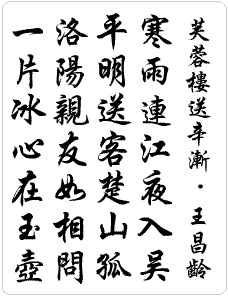 芙蓉樓送辛漸·王昌齡
寒雨連江夜入吳
平明送客楚山孤
洛陽親友如相問
一片冰心在玉壺